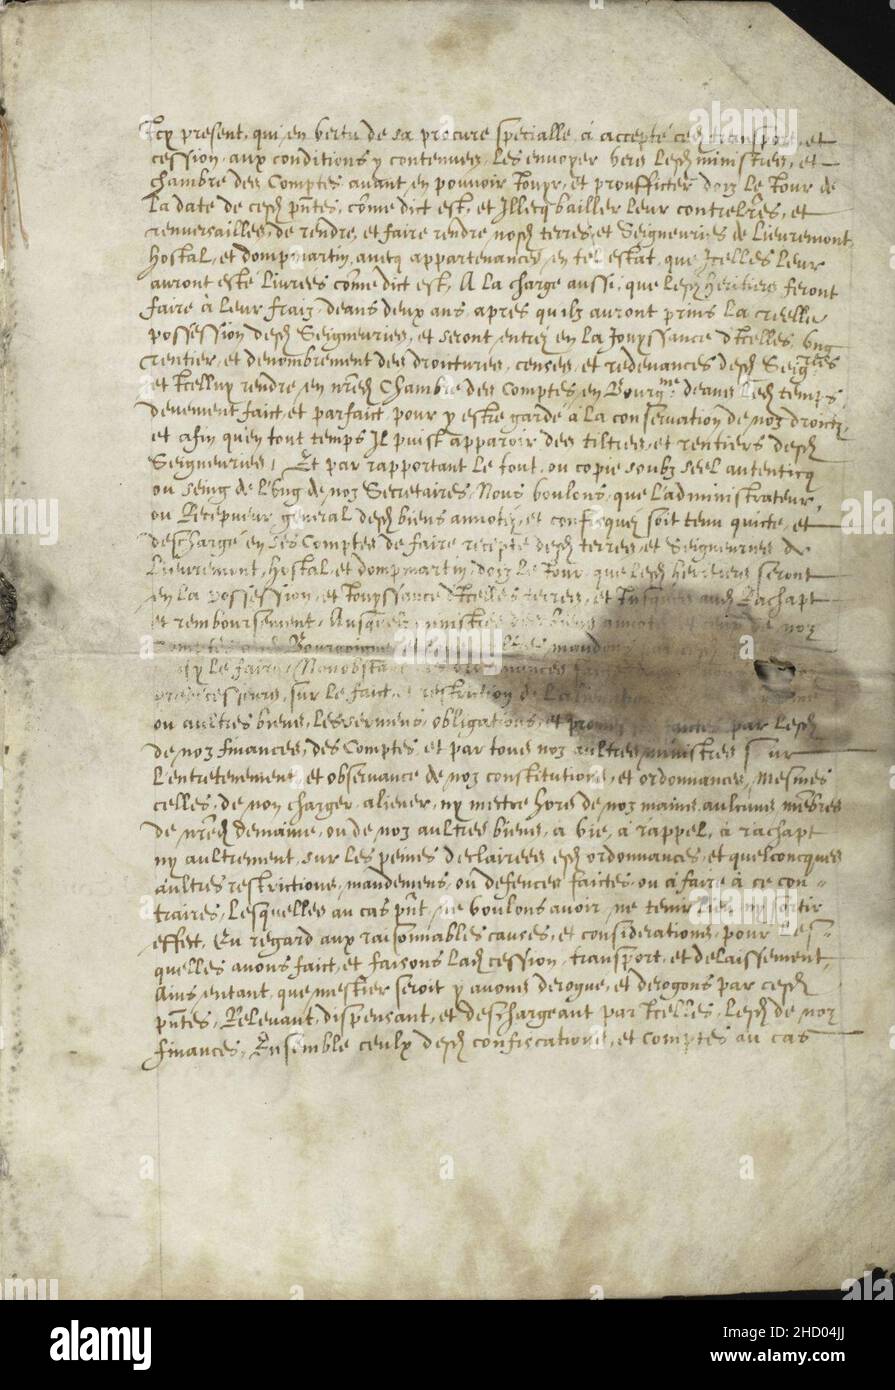 Icy present, qui en vertu de sa procure specialle à accepté ced transport, et
cession, aux conditions y contenues, les envoyer vers lesd ministres, et
chambre des Comptes avant en pouvoir Jouyr, et prouffiter dois le Jour de
la date de cesd pntes, côme dict est, et Illecq bailler leur contrelres, et
renversailles, de rendre, et faire rendre nosd terres, et Seigneuries de Lieuremont
hostal, et dompmartin, avecq appartenances, en tel estat, que Icelles leur
auront esté livrees côme dict est, A la charge aussi, que lesd heritiers feront
faire à leur fraiz, deans deux ans, apres qu'ilz auront prins la reelle
possession desd Seigneuries, et seront entrez en la Jouyssance d'Icelles, ung
rentier, et denombrement des droictures, censes, et redevances desd Seigries
et Icelluy rendre, en nred Chambre des Comptes, en Bourgne deans led temps,
deuement faict, et parfaict, pour y estre gardé à la conservation de noz droictz,
et afin qu'en tout temps Il puist apparoir des tiltres, et rentiers desd
Seigneuries, Et par rapportant le tout, ou copie soubz seel autenticq
ou seing de l'ung de noz Secretaires, Nous voulons, que l'administrateur,
ou Recepueur general desd biens annotez, et confisquez soit tenu quicte, et
deschargé en ses Comptes de faire recepte desd terres, et Seigneuries de
Lieuremont, hostal, et dompmartin, dois le Jour, que lesd heritiers seront
en la possession, et Jouyssance d'Icelles terres, et Jusques aud Rachapt
et remboursement, Ausquelz ministres des biens et de noz
comptes aud Bourgoigne, et mandons
le faire, Nonobstant ordonnances
predecesseurs, sur le faict, restriction de
ou aultres biens, les sermens, obligations, et par lesd
de noz finances, des Comptes, et par tous noz aultres ministres sur
l'entretenement, et observance de noz constitutions, et ordonnances, mesmes
celles, de non charger, aliener, ny mectre hors de noz mains, aulcuns mêbres
de nred demaine, ou de noz aultres biens, a vie, à rappel, à rachapt
ny aultrement, sur les peines declairees esd ordonnances, et quelconcques
aultres restrictions, mandemens, ou defences faictes, ou à faire à ce con-
traires, Lesquelles au cas pnt, ne voulons avoir, ne tenir lieu, ny sortir
effect, Eu regard aux raisonnables causes, et considerations, pour les-
quelles avons faict, et faisons lad cession, transport, et delaissement,
Ains, entant, que mestier seroit y avons derogue, et derogons par cesd
pntes, Relevant, dispensant, et deschargeant par Icelles, lesd de noz
finances, Ensemble ceulx desd confiscations, et comptes au cas
alamy
Image ID: 2HD04JJ
www.alamy.com